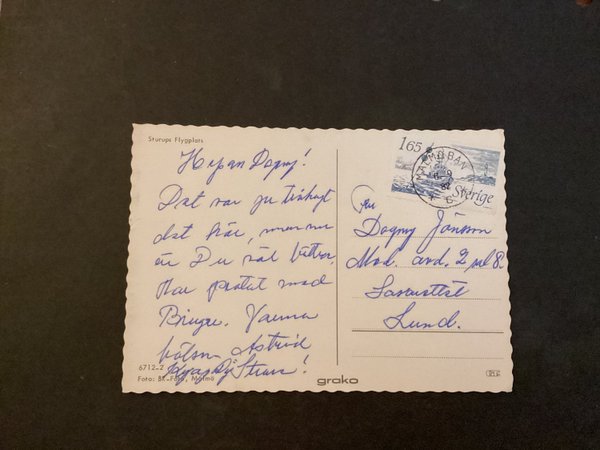 Sturups Flygplats
Hejsan Dagny!
Det var ju tråkigt
det här, men nu
är Du väl bättre,
Har pratat med
Birgit. Varma
hälsn Astrid
Krya Dej Stures!
6712-2
Foto: BK-Foto, Malmö
groko
165
MALMÖ BAN
Sverige
Fru
Dagny Jönsson
Med. avd. 2 sal 8.
Lasarettet
Lund.